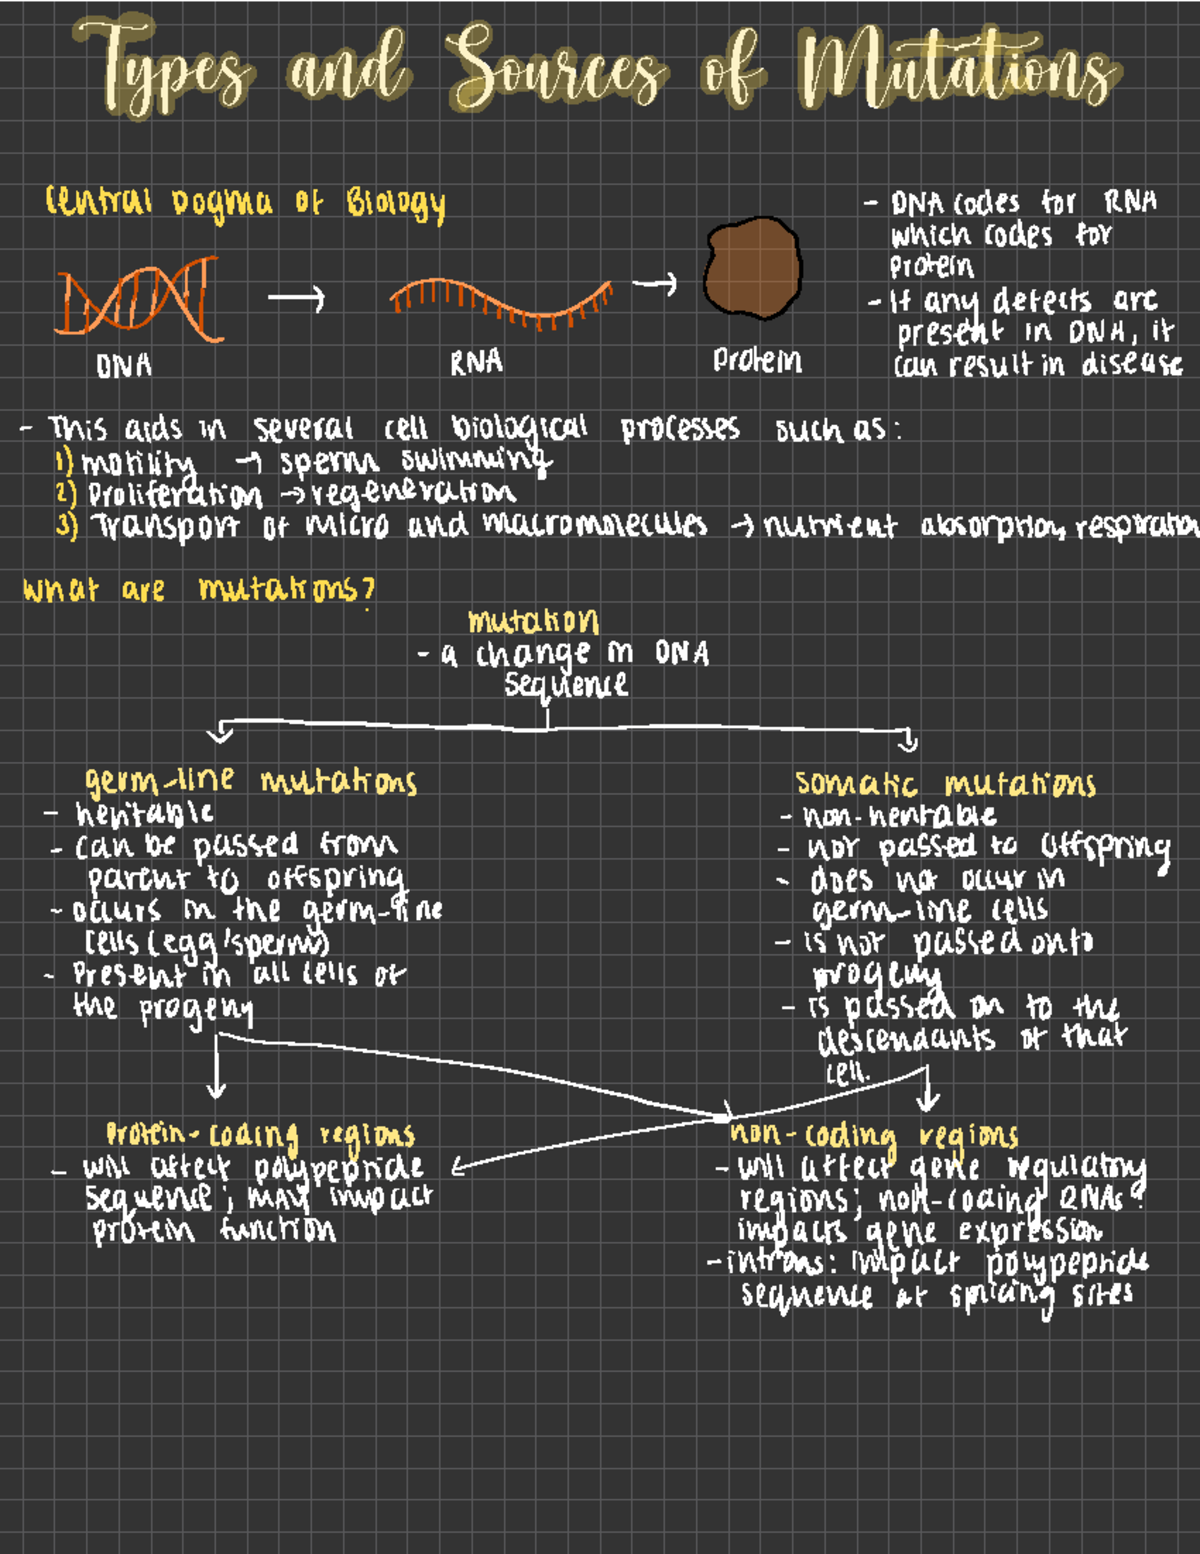 Types and Sources of Mutations
Central Dogma of Biology
DNA
RNA
Protein
- DNA codes for RNA
which codes for
protein
- If any defects are
present in DNA, it
can result in disease
- This aids in several cell biological processes such as:
1) motility → sperm swimming
2) Proliferation → regeneration
3) Transport of micro and macromolecules → nutrient absorption, respiration
What are mutations?
mutation
- a change in DNA
sequence
germ-line mutations
- heritable
- can be passed from
parent to offspring
- occurs in the germ-line
cells (egg/sperm)
- Present in all cells of
the progeny
somatic mutations
- non-heritable
- not passed to offspring
- does not occur in
germ-line cells
- is not passed onto
progeny
- is passed on to the
descendants of that
cell.
Protein-coding regions
- will affect polypeptide
sequence; MAY impact
protein function
non-coding regions
- will affect gene regulatory
regions; non-coding RNAs:
impacts gene expression
- introns: impact polypeptide
sequence at splicing sites